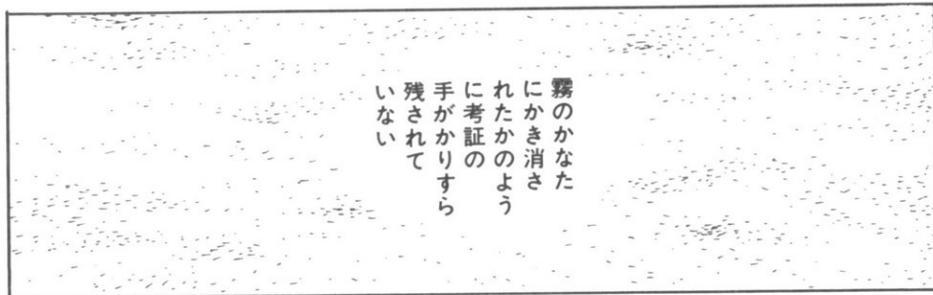 霧のかなた
にかき消さ
れたかのよう
に考証の
手がかりすら
残されて
いない